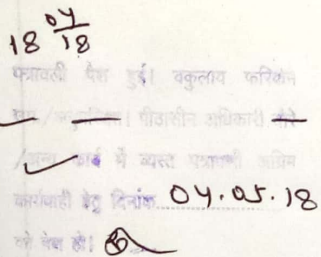 18 04/18
पत्रावली पेश हुई। वकुलाय फरिकेन
पीठासीन अधिकारी
/अन्य कार्य में व्यस्त पत्रावली अग्रिम
कार्यवाही हेतु दिनांक 04.05.18
को पेश हो।